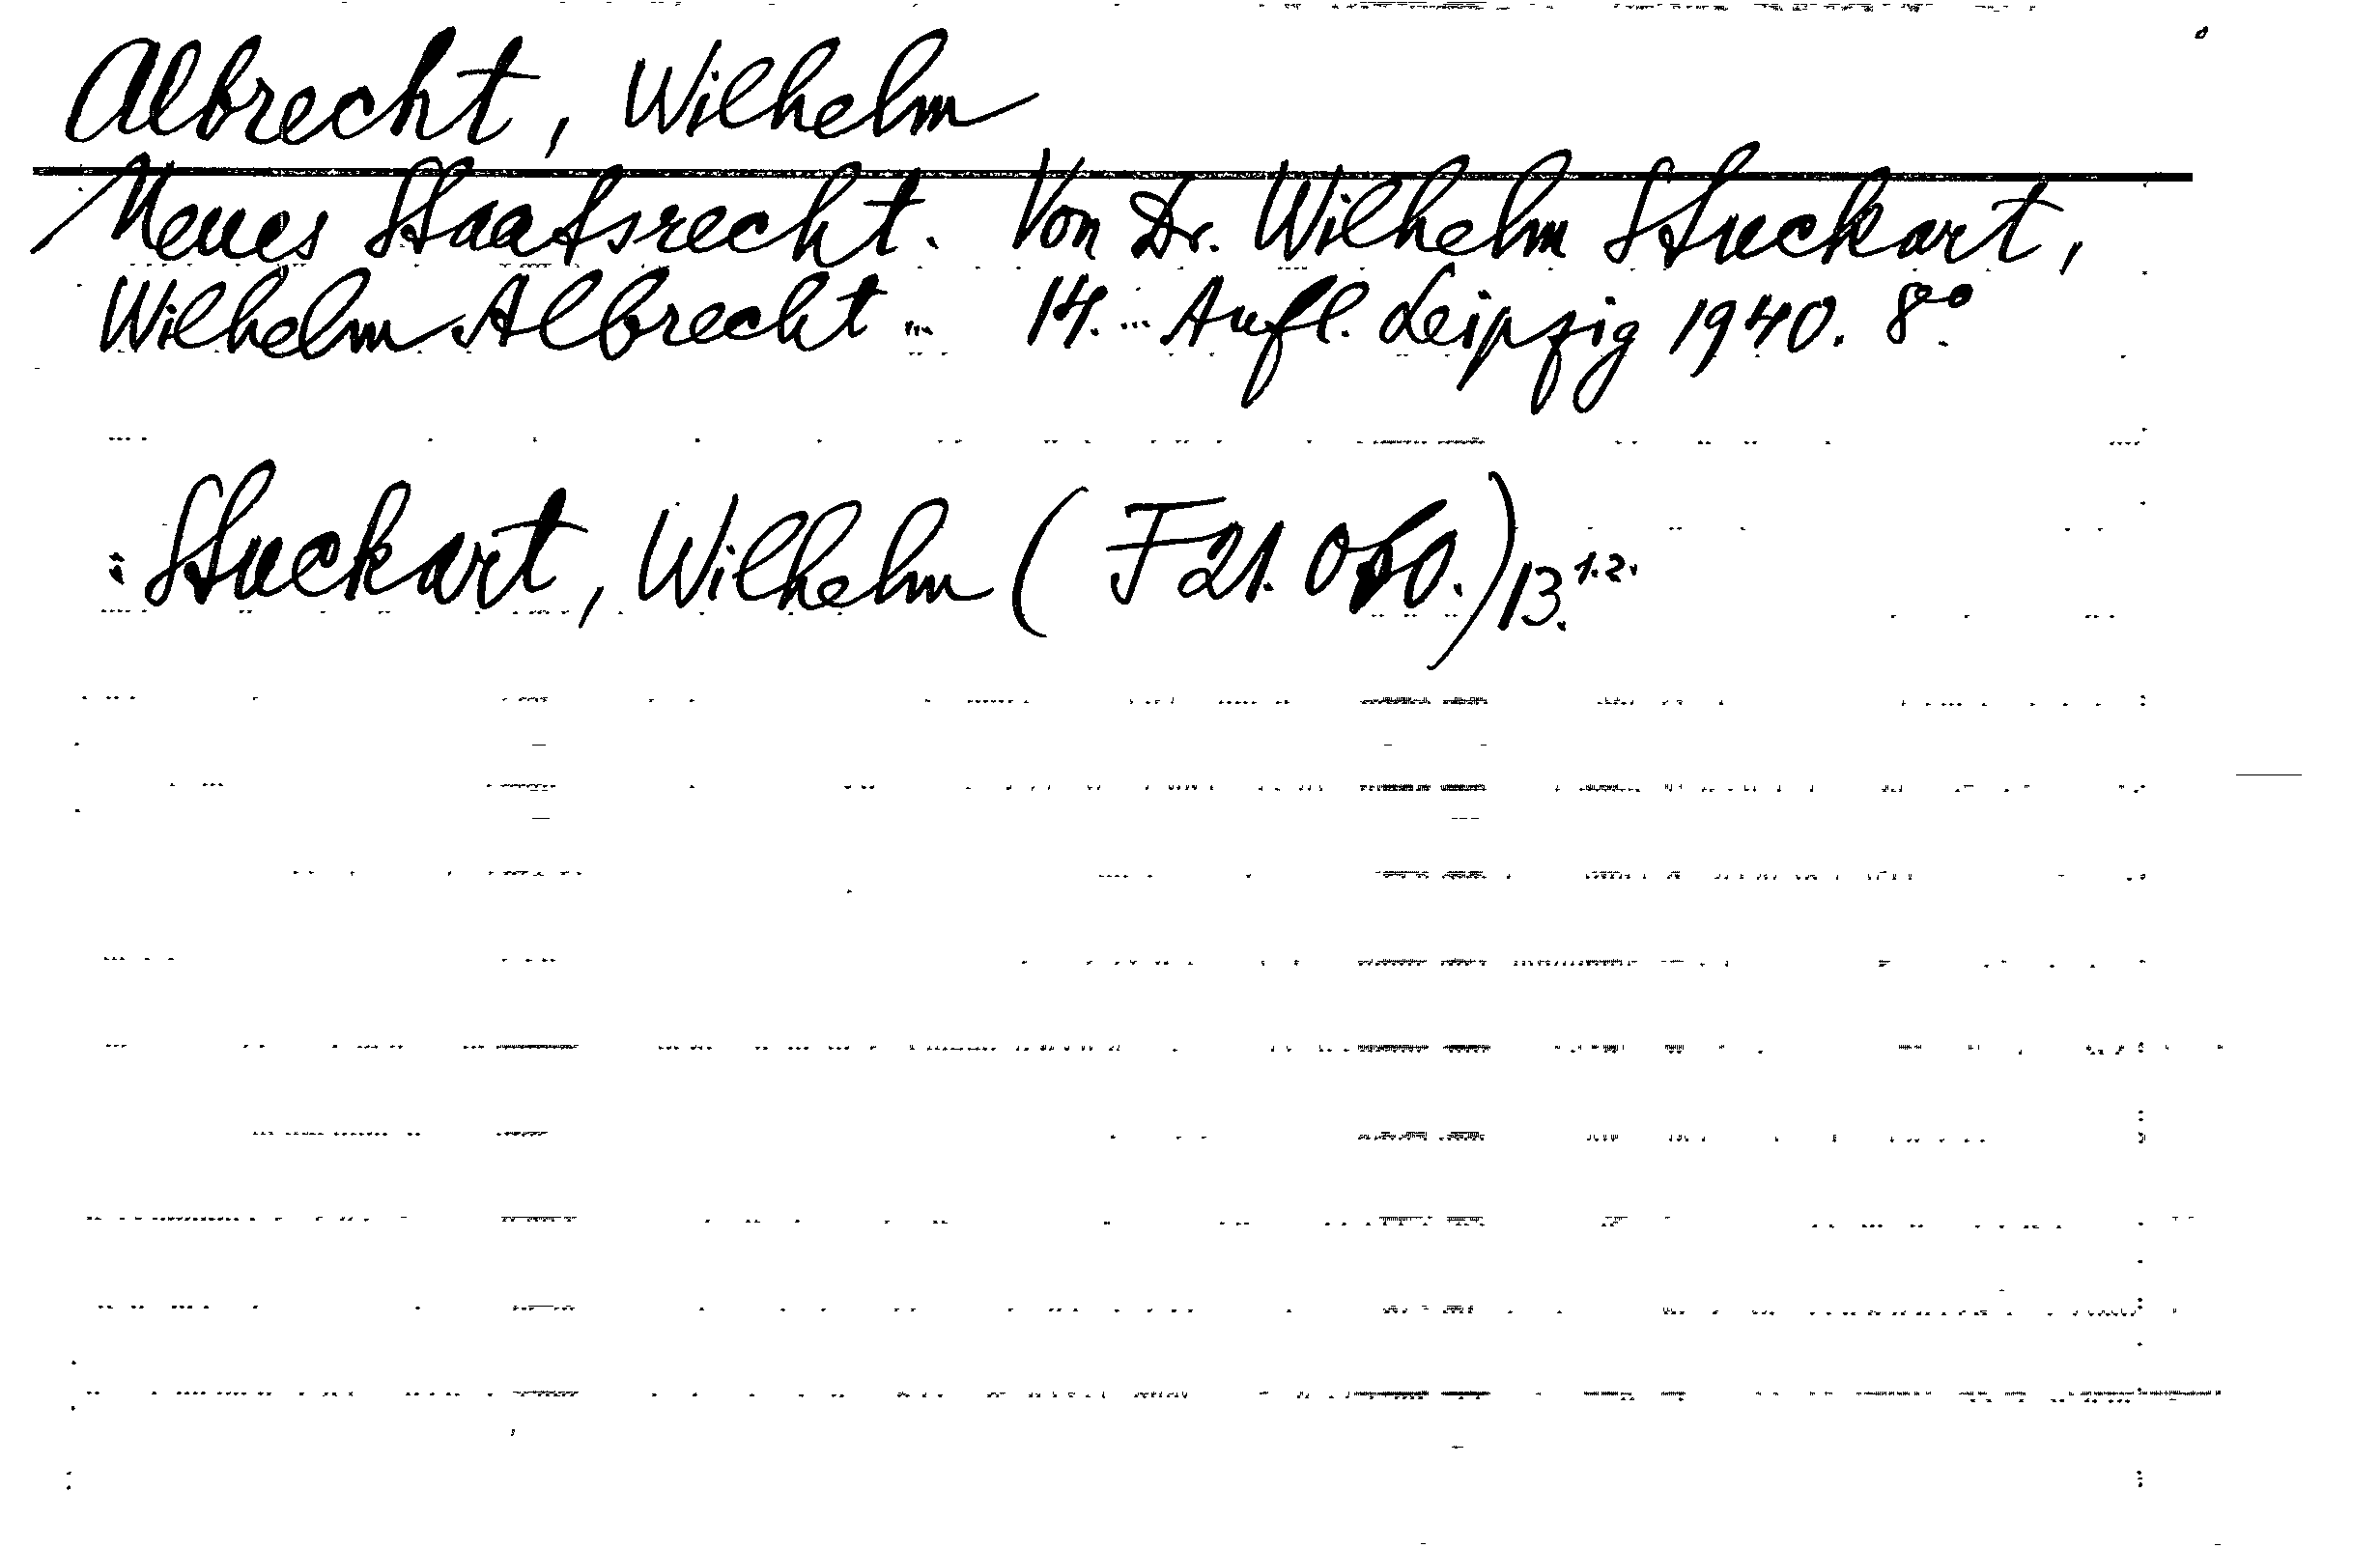 Albrecht, Wilhelm
Neues Staatsrecht. Von Dr. Wilhelm Stuckart,
Wilhelm Albrecht ... 14. ... Aufl. Leipzig 1940. 8°
: Stuckart, Wilhelm ( F 21. ) 13. 1.2.